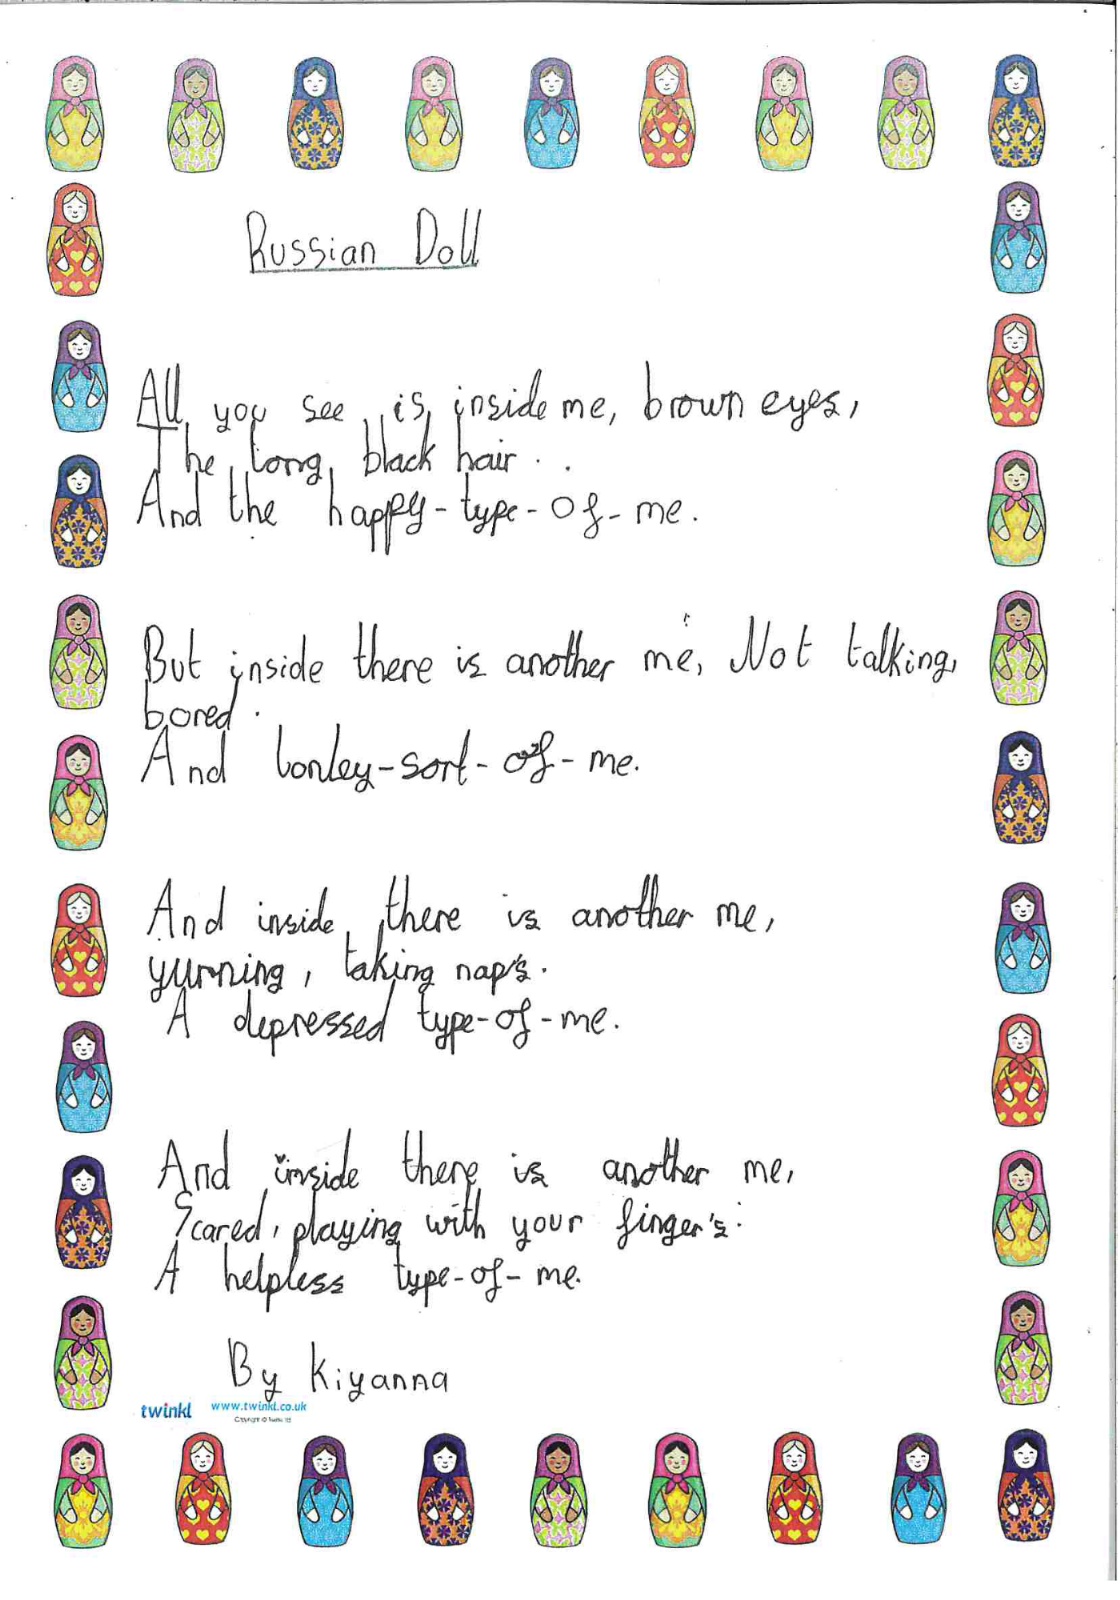 Russian Doll
All you see is inside me, brown eyes,
The long, black hair . .
And the happy-type-of-me.
But inside there is another me, Not talking,
bored.
And lonley-sort-of-me.
And inside there is another me,
yurning, taking nap's.
A depressed type-of-me.
And inside there is another me,
Scared, playing with your finger's.
A helpless type-of-me.
By Kiyanna
twinkl www.twinkl.co.uk